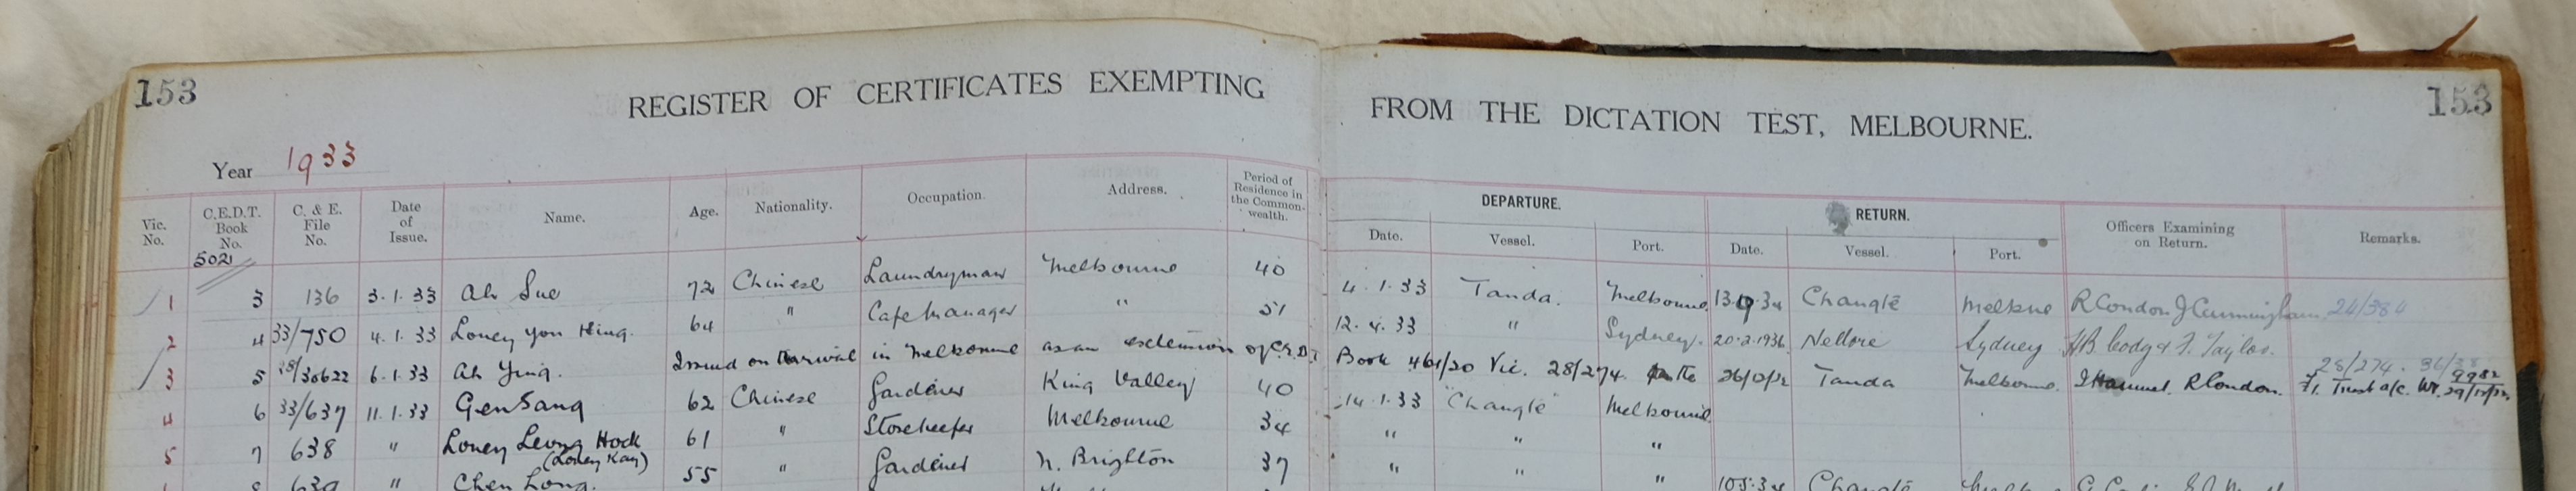 153 153
REGISTER OF CERTIFICATES EXEMPTING FROM THE DICTATION TEST, MELBOURNE.
Year 1933
Vic. No. C.E.D.T. Book No. C. & E. File No. Date of Issue. Name. Age. Nationality. Occupation. Address. Period of Residence in the Common-wealth. DEPARTURE. Date. Vessel. Port. RETURN. Date. Vessel. Port. Officers Examining on Return. Remarks.
502
1 3 136 3.1.33 Ah Sue 72 Chinese Laundryman Melbourne 40 4.1.33 Tanda. Melbourne 13.9.34 Changte Melbne R Condon J Cunningham 24/384
2 4 33/750 4.1.33 Louey Yon Hing. 64 " Cafe Manager " 51 12.4.33 " Sydney. 20.2.1936 Nellore Sydney HB Cody & F. Taylor.
3 5 28/30622 6.1.33 Ah Ying. Issued on arrival in Melbourne as an extension of C.E.D.T Book 461/20 Vic. 28/274. 26/12/32 Tanda Melbourne. R Condon. 28/274. Trust a/c.
4 6 33/637 11.1.33 Gen Sang 62 Chinese Gardener King Valley 40 14.1.33 "Changte" Melbourne
5 7 638 " Louey Leong Hock (Louey Kay) 61 " Storekeeper Melbourne 34 " " "
8 639 " Chen Long. 55 " Gardener N. Brighton 37 " " " 10.5.34 Changte